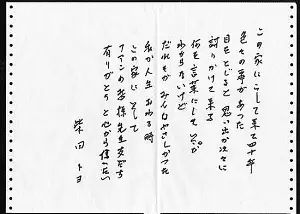 この家にこして来て四十年
色々の事があった
目をとじると思い出が次々に
語りかけて来る
何を言葉にしていいか
わからないけど
だれもが みんなやさしかった
私が人生 おわる時
この家に そして
ファンの皆様先生友だち
有りがとうと心から信へたい
柴田トヨ